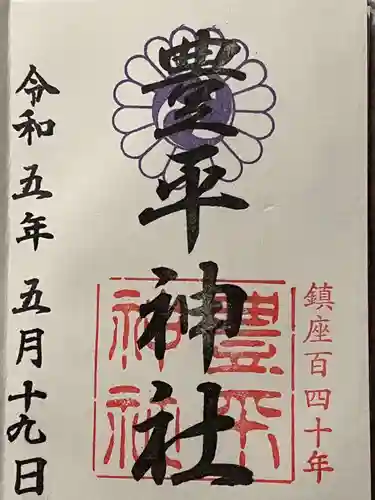 鎮座百四十年
豊平神社
豊平神社
令和五年 五月十九日